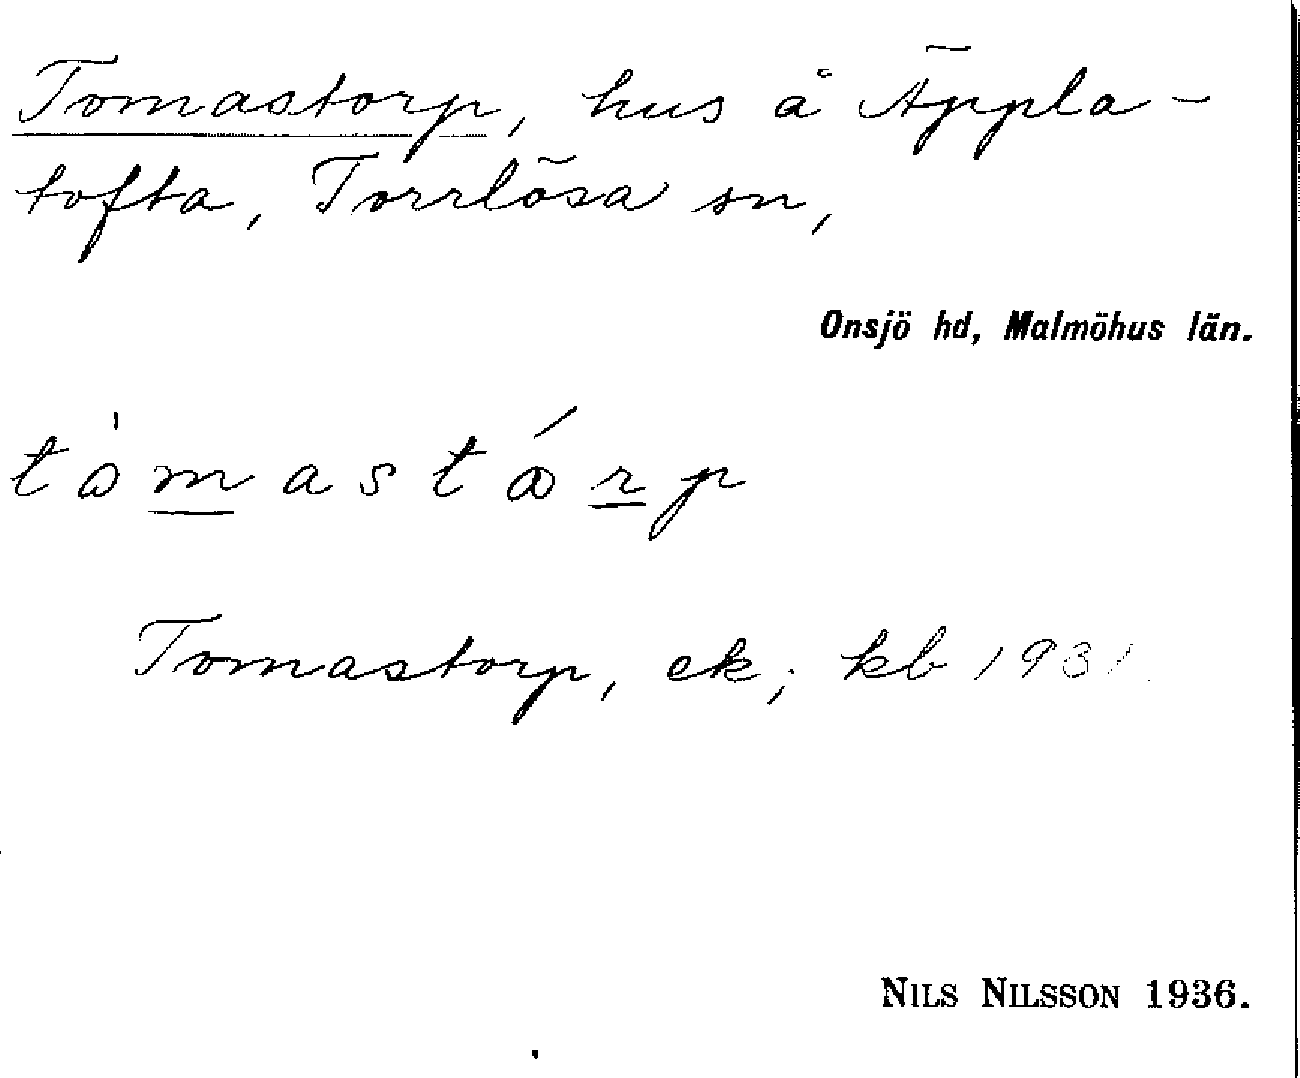 Tomastorp, hus å Äppla-
tofta, Torrlösa sn,
Onsjö hd, Malmöhus län.
tòmastárp
Tomastorp, ek; kb 1931.
NILS NILSSON 1936.